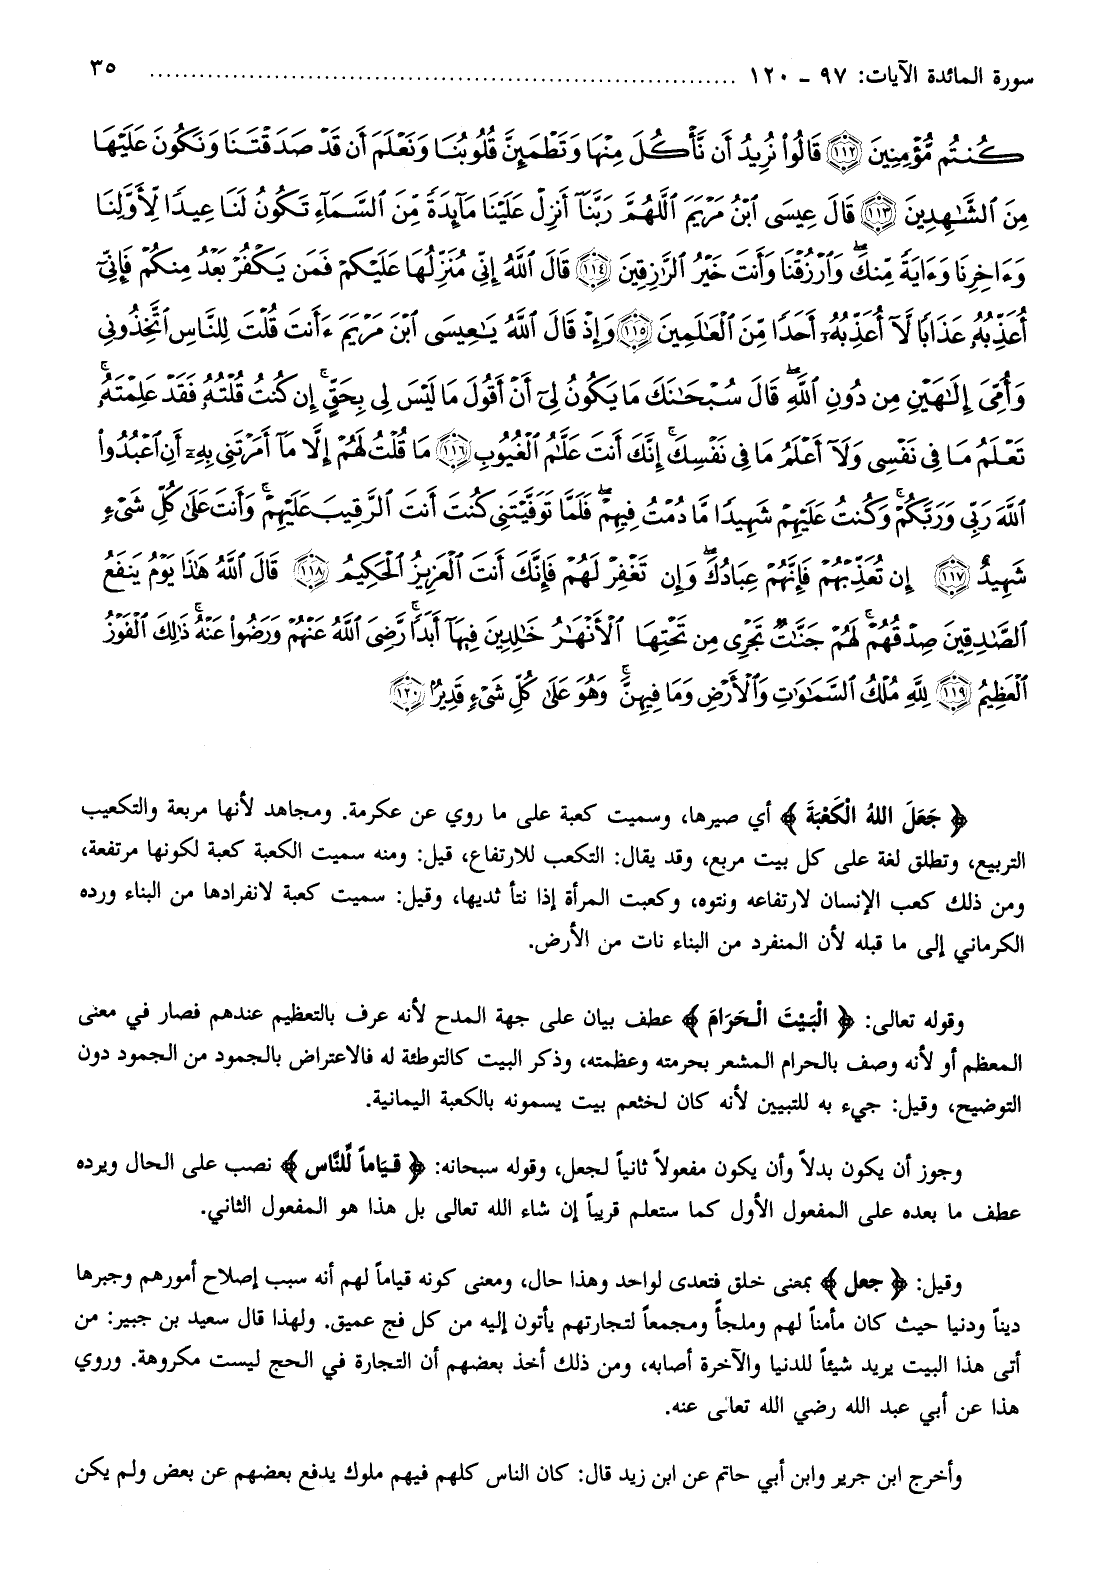 سورة المائدة الآيات: ٩٧ ـ ١٢٠ ............................................................ ٣٥
كُنتُم مُّؤْمِنِينَ ﴿١١٢﴾ قَالُوا۟ نُرِيدُ أَن نَّأْكُلَ مِنْهَا وَتَطْمَئِنَّ قُلُوبُنَا وَنَعْلَمَ أَن قَدْ صَدَقْتَنَا وَنَكُونَ عَلَيْهَا
مِنَ ٱلشَّٰهِدِينَ ﴿١١٣﴾ قَالَ عِيسَى ٱبْنُ مَرْيَمَ ٱللَّهُمَّ رَبَّنَآ أَنزِلْ عَلَيْنَا مَآئِدَةً مِّنَ ٱلسَّمَآءِ تَكُونُ لَنَا عِيدًا لِّأَوَّلِنَا
وَءَاخِرِنَا وَءَايَةً مِّنكَ ۖ وَٱرْزُقْنَا وَأَنتَ خَيْرُ ٱلرَّٰزِقِينَ ﴿١١٤﴾ قَالَ ٱللَّهُ إِنِّى مُنَزِّلُهَا عَلَيْكُمْ ۖ فَمَن يَكْفُرْ بَعْدُ مِنكُمْ فَإِنِّىٓ
أُعَذِّبُهُۥ عَذَابًا لَّآ أُعَذِّبُهُۥٓ أَحَدًا مِّنَ ٱلْعَٰلَمِينَ ﴿١١٥﴾ وَإِذْ قَالَ ٱللَّهُ يَٰعِيسَى ٱبْنَ مَرْيَمَ ءَأَنتَ قُلْتَ لِلنَّاسِ ٱتَّخِذُونِى
وَأُمِّىَ إِلَٰهَيْنِ مِن دُونِ ٱللَّهِ ۖ قَالَ سُبْحَٰنَكَ مَا يَكُونُ لِىٓ أَنْ أَقُولَ مَا لَيْسَ لِى بِحَقٍّ ۚ إِن كُنتُ قُلْتُهُۥ فَقَدْ عَلِمْتَهُۥ ۚ
تَعْلَمُ مَا فِى نَفْسِى وَلَآ أَعْلَمُ مَا فِى نَفْسِكَ ۚ إِنَّكَ أَنتَ عَلَّٰمُ ٱلْغُيُوبِ ﴿١١٦﴾ مَا قُلْتُ لَهُمْ إِلَّا مَآ أَمَرْتَنِى بِهِۦٓ أَنِ ٱعْبُدُوا۟
ٱللَّهَ رَبِّى وَرَبَّكُمْ ۚ وَكُنتُ عَلَيْهِمْ شَهِيدًا مَّا دُمْتُ فِيهِمْ ۖ فَلَمَّا تَوَفَّيْتَنِى كُنتَ أَنتَ ٱلرَّقِيبَ عَلَيْهِمْ ۚ وَأَنتَ عَلَىٰ كُلِّ شَىْءٍ
شَهِيدٌ ﴿١١٧﴾ إِن تُعَذِّبْهُمْ فَإِنَّهُمْ عِبَادُكَ ۖ وَإِن تَغْفِرْ لَهُمْ فَإِنَّكَ أَنتَ ٱلْعَزِيزُ ٱلْحَكِيمُ ﴿١١٨﴾ قَالَ ٱللَّهُ هَٰذَا يَوْمُ يَنفَعُ
ٱلصَّٰدِقِينَ صِدْقُهُمْ ۚ لَهُمْ جَنَّٰتٌ تَجْرِى مِن تَحْتِهَا ٱلْأَنْهَٰرُ خَٰلِدِينَ فِيهَآ أَبَدًا ۚ رَّضِىَ ٱللَّهُ عَنْهُمْ وَرَضُوا۟ عَنْهُ ۚ ذَٰلِكَ ٱلْفَوْزُ
ٱلْعَظِيمُ ﴿١١٩﴾ لِلَّهِ مُلْكُ ٱلسَّمَٰوَٰتِ وَٱلْأَرْضِ وَمَا فِيهِنَّ ۚ وَهُوَ عَلَىٰ كُلِّ شَىْءٍ قَدِيرٌۢ ﴿١٢٠﴾
﴿ جَعَلَ اللهُ الْكَعْبَةَ ﴾ أي صيرها، وسميت كعبة على ما روي عن عكرمة. ومجاهد لأنها مربعة والتكعيب
التربيع، وتطلق لغة على كل بيت مربع، وقد يقال: التكعب للارتفاع، قيل: ومنه سميت الكعبة كعبة لكونها مرتفعة،
ومن ذلك كعب الإنسان لارتفاعه ونتوه، وكعبت المرأة إذا نتأ ثديها، وقيل: سميت كعبة لانفرادها من البناء ورده
الكرماني إلى ما قبله لأن المنفرد من البناء نات من الأرض.
وقوله تعالى: ﴿ الْبَيْتَ الْحَرَامَ ﴾ عطف بيان على جهة المدح لأنه عرف بالتعظيم عندهم فصار في معنى
المعظم أو لأنه وصف بالحرام المشعر بحرمته وعظمته، وذكر البيت كالتوطئة له فالاعتراض بالجمود من الجمود دون
التوضيح، وقيل: جيء به للتبيين لأنه كان لخثعم بيت يسمونه بالكعبة اليمانية.
وجوز أن يكون بدلاً وأن يكون مفعولاً ثانياً لجعل، وقوله سبحانه: ﴿ قِيَاماً لِّلنَّاس ﴾ نصب على الحال ويرده
عطف ما بعده على المفعول الأول كما ستعلم قريباً إن شاء الله تعالى بل هذا هو المفعول الثاني.
وقيل: ﴿ جعل ﴾ بمعنى خلق فتعدى لواحد وهذا حال، ومعنى كونه قياماً لهم أنه سبب إصلاح أمورهم وجبرها
ديناً ودنيا حيث كان مأمناً لهم وملجأً ومجمعاً لتجارتهم يأتون إليه من كل فج عميق. ولهذا قال سعيد بن جبير: من
أتى هذا البيت يريد شيئاً للدنيا والآخرة أصابه، ومن ذلك أخذ بعضهم أن التجارة في الحج ليست مكروهة. وروي
هذا عن أبي عبد الله رضي الله تعالى عنه.
وأخرج ابن جرير وابن أبي حاتم عن ابن زيد قال: كان الناس كلهم فيهم ملوك يدفع بعضهم عن بعض ولم يكن